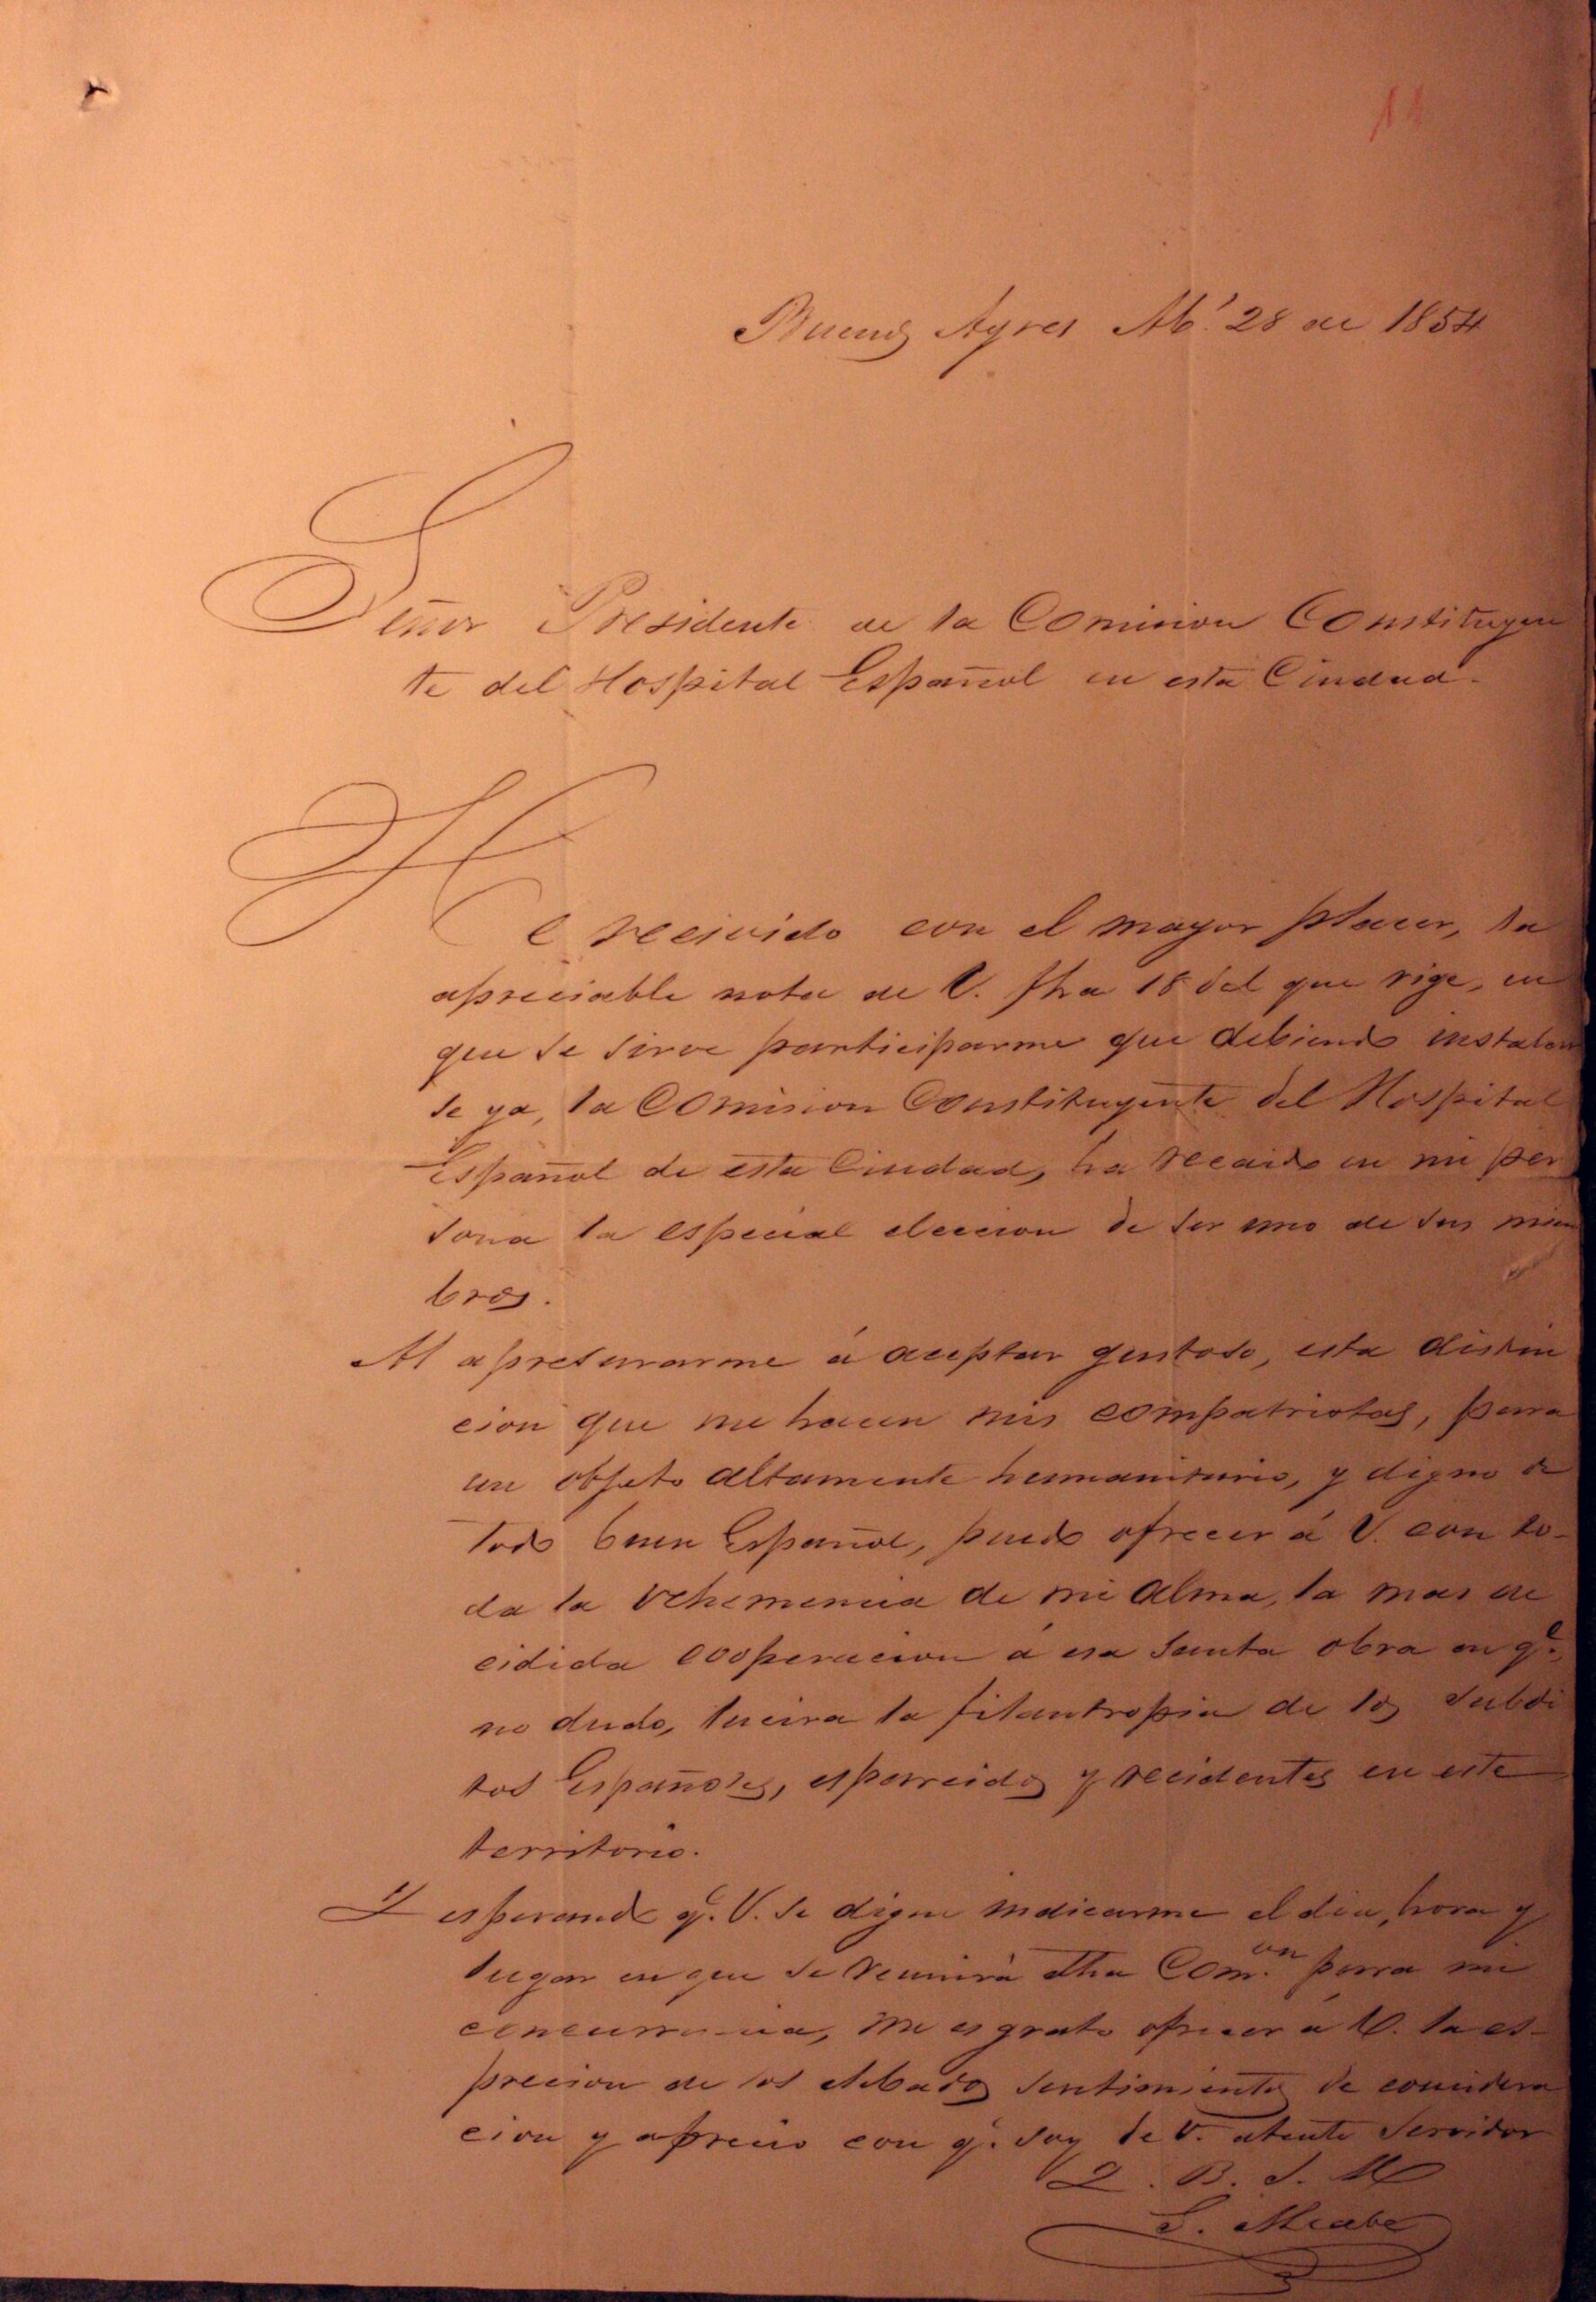 11
Buenos Ayres Ab.l 28 de 1854
Señor Presidente de la Comision Constituyen
te del Hospital Español en esta Ciudad.
He recivido con el mayor placer, la
apreciable nota de V. fha 18 del que rige, en
que se sirve participarme que debiendo instalar
se ya, la Comision Constituyente del Hospital
Español de esta Ciudad, ha recaido en mi per
sona la especial eleccion de ser uno de sus miem
bros.
Al apresurarme á aceptar gustoso, esta distin
cion que me hacen mis compatriotas, para
un objeto altamente humanitario, y digno de
todo buen Español, puedo ofrecer á V. con to-
da la vehemencia de mi alma, la mas de
cidida cooperacion á esa santa obra en q.e,
no dudo, lucira la filantropia de los subdi
tos Españoles, esparcidos y recidentes en este
territorio.
Y esperando q.e V. se digne indicarme el dia, hora y
lugar en que se reunirá dha Com.on para mi
concurrencia, me es grato ofrecer á V. la es-
precion de los elebados sentimientos de considera
cion y aprecio con q.e soy de V. atento servidor
Q. B. S. M